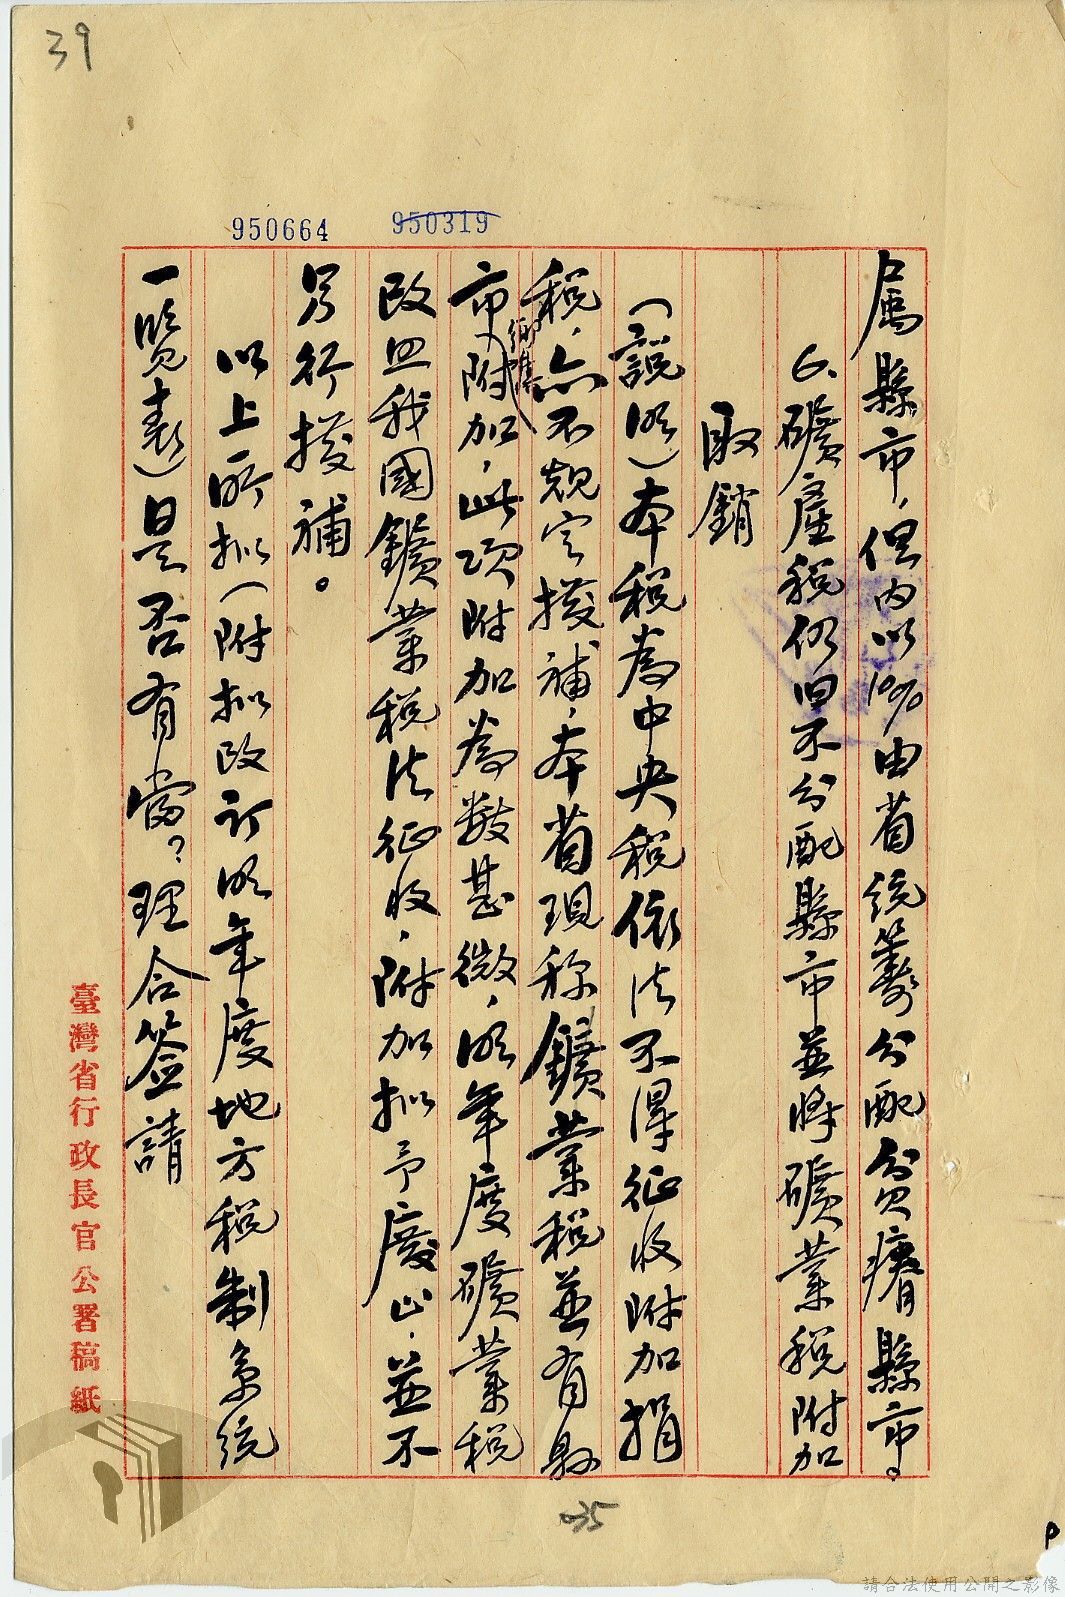 39
950664
950319
屬縣市，但內以10%由省統籌分配貧瘠縣市。
6.礦產稅仍舊不分配縣市並將礦業稅附加
取銷
（說明）本稅為中央稅依法不得征收附加捐
稅，亦不規定撥補，本省現称鑛業稅並有縣
市、鄉鎮附加，此項附加為數甚微，明年度礦業稅
改照我國鑛業稅法征收，附加拟予廢止，並不
另行撥補。
以上所拟（附拟改訂明年度地方稅制系統
一覽表）是否有當？理合签請
臺灣省行政長官公署稿紙
035
請合法使用公開之影像